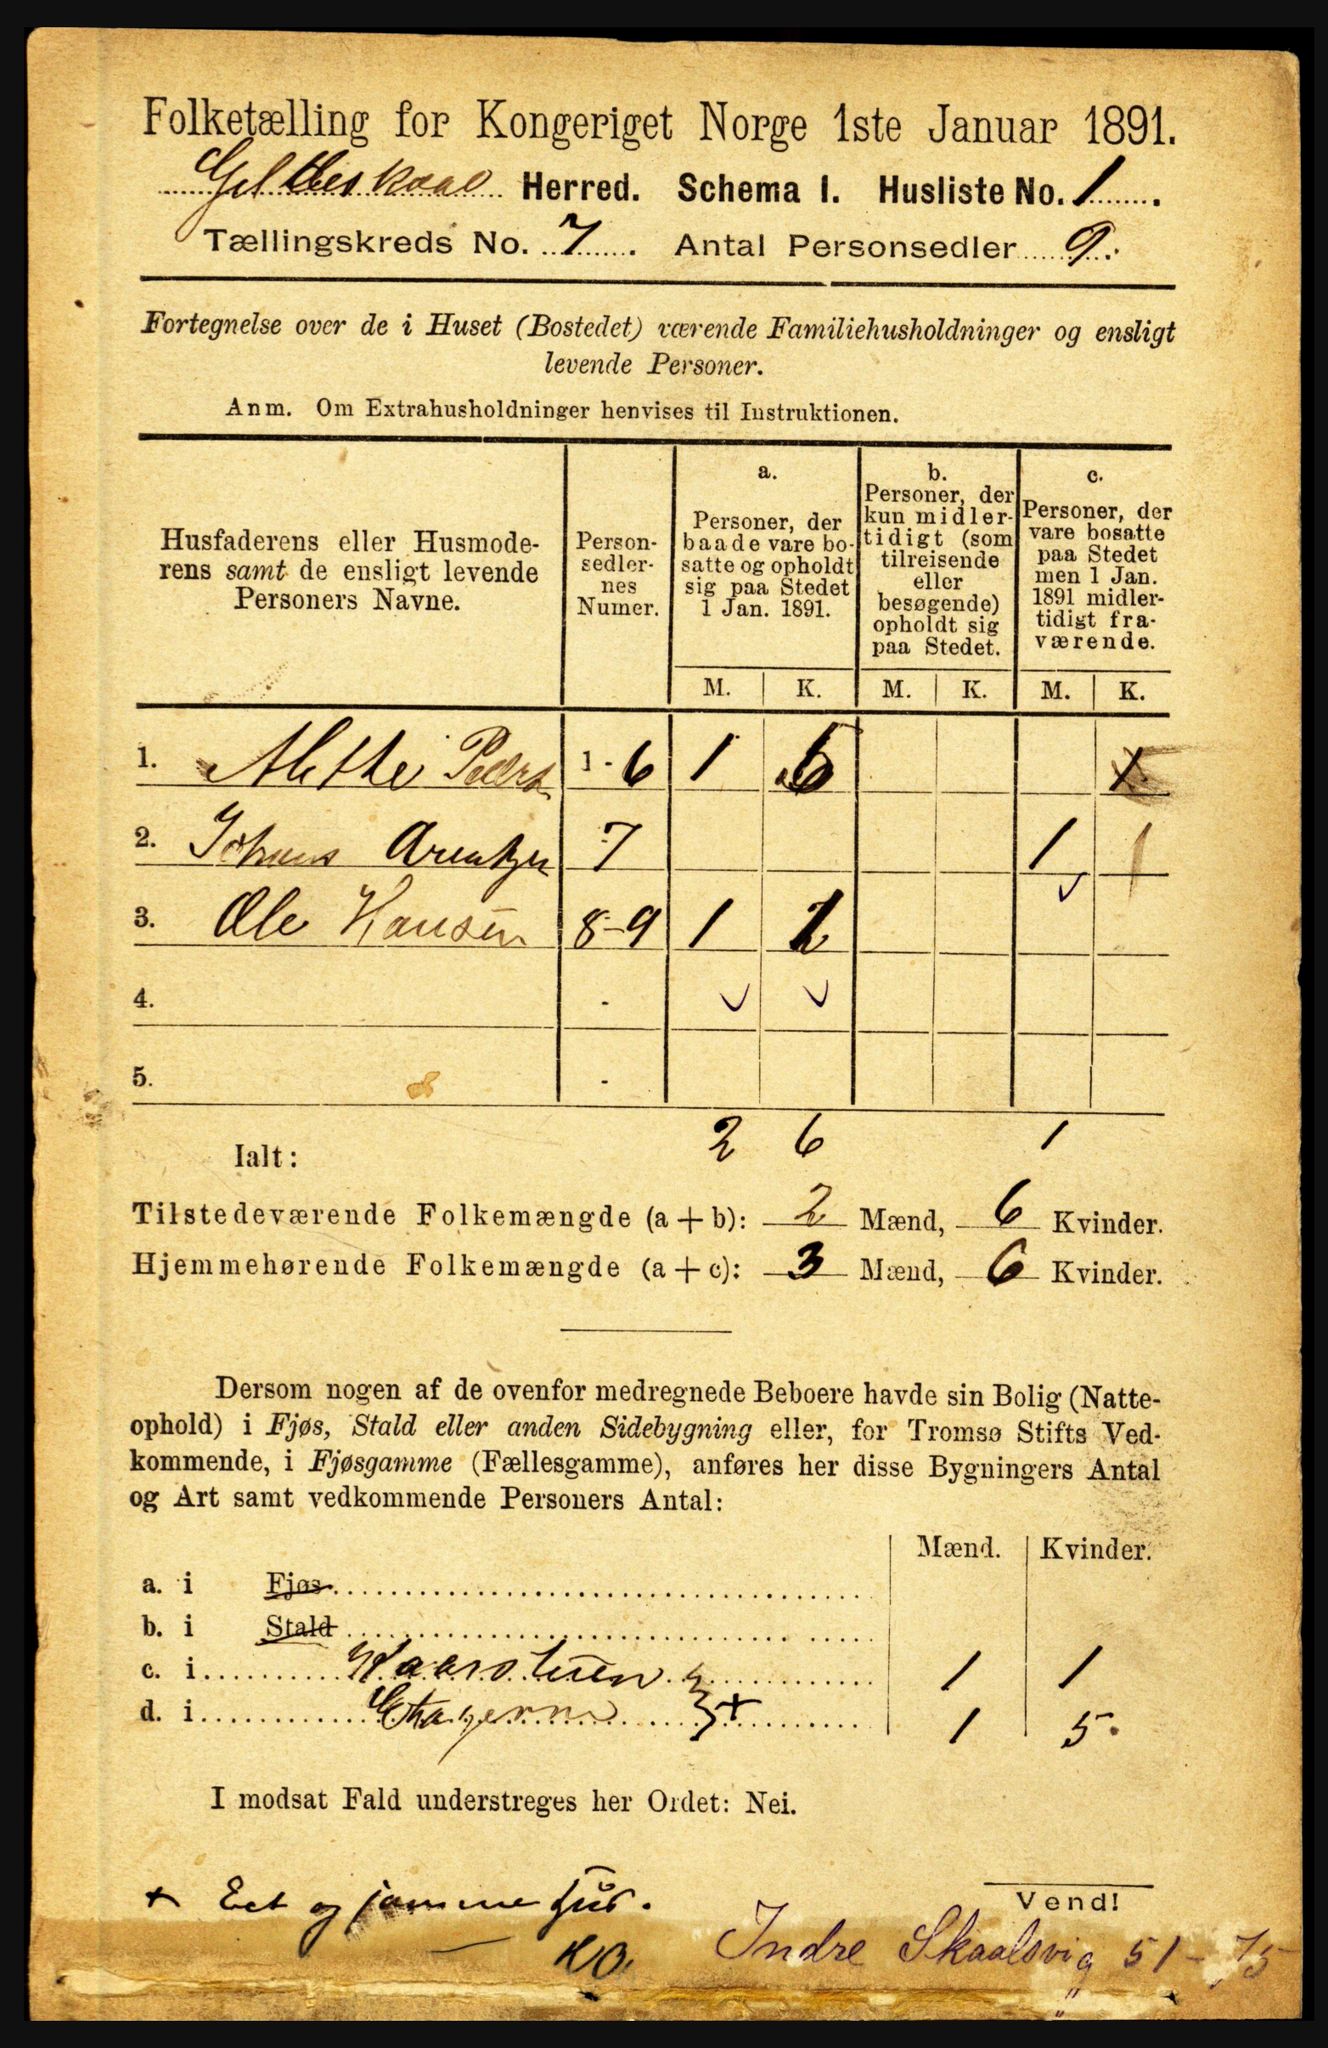 Folketælling for Kongeriget Norge 1ste Januar 1891.
Herred. Schema I. Husliste No. 1
Tællingskreds No. 7. Antal Personsedler 9.
Fortegnelse over de i Huset (Bostedet) værende Familiehusholdninger og ensligt
levende Personer.
Anm. Om Extrahusholdninger henvises til Instruktionen.
Husfaderens eller Husmode-
rens samt de ensligt levende
Personers Navne.
Person-
sedler-
nes
Numer.
a.
Personer, der
baade vare bo-
satte og opholdt
sig paa Stedet
1 Jan. 1891.
b.
Personer, der
kun midler-
tidigt (som
tilreisende
eller
besøgende)
opholdt sig
paa Stedet.
c.
Personer, der
vare bosatte
paa Stedet
men 1 Jan.
1891 midler-
tidigt fra-
værende.
M. K. M. K. M. K.
1. 1 - 6 1 5
2. Johans 7 1 1
3. Ole Hansen 8-9 1 1
4. -
5. -
Ialt: 2 6 1
Tilstedeværende Folkemængde (a + b): 2 Mænd, 6 Kvinder.
Hjemmehørende Folkemængde (a + c): 3 Mænd, 6 Kvinder.
Dersom nogen af de ovenfor medregnede Beboere havde sin Bolig (Natte-
ophold) i Fjøs, Stald eller anden Sidebygning eller, for Tromsø Stifts Ved-
kommende, i Fjøsgamme (Fællesgamme), anføres her disse Bygningers Antal
og Art samt vedkommende Personers Antal:
Mænd. Kvinder.
a. i Fjøs
b. i Stald
c. i Kaarstuen 1 1
d. i + 1 5.
I modsat Fald understreges her Ordet: Nei.
+ Eet og samme Hus.
Vend!
Indre Skaalsvig 51 - 75